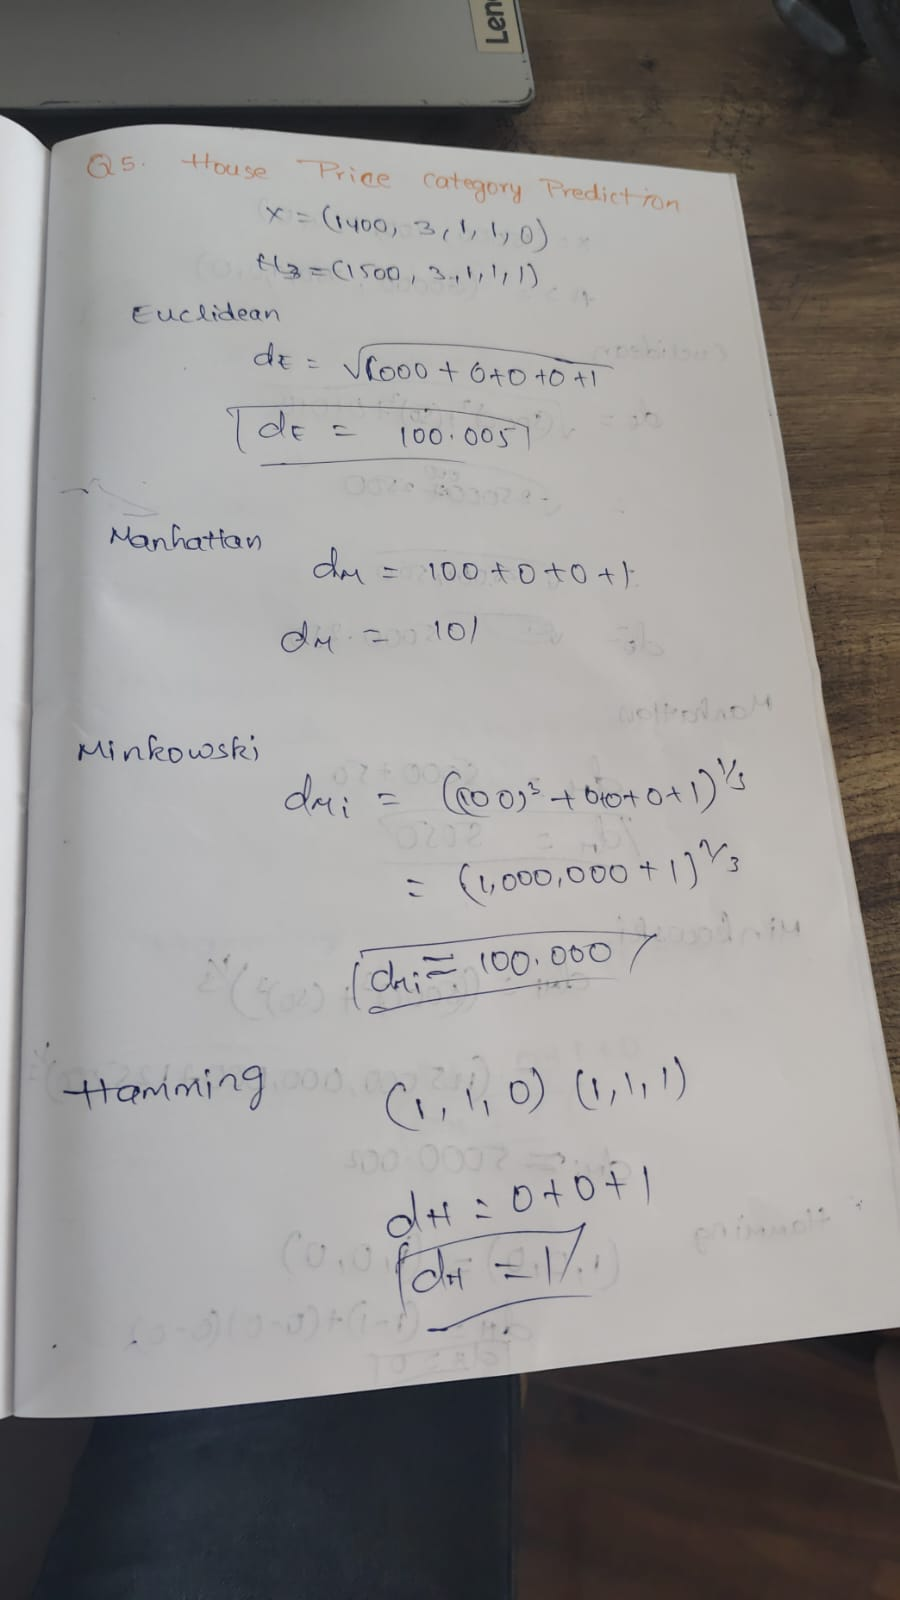 Len
Q5. House Price Category Prediction
x = (1400, 3, 1, 1, 0)
H3 = (1500, 3, 1, 1, 1)
Euclidean
dE = √1000 + 0+0+0+1
dE = 100.005
Manhattan
dM = 100+0+0+1
dM = 101
Minkowski
dMi = ((100)³ + 0+0+0+1)^1/3
= (1,000,000 + 1)^1/3
dMi = 100.000
Hamming (1, 1, 0) (1, 1, 1)
dH = 0+0+1
dH = 1